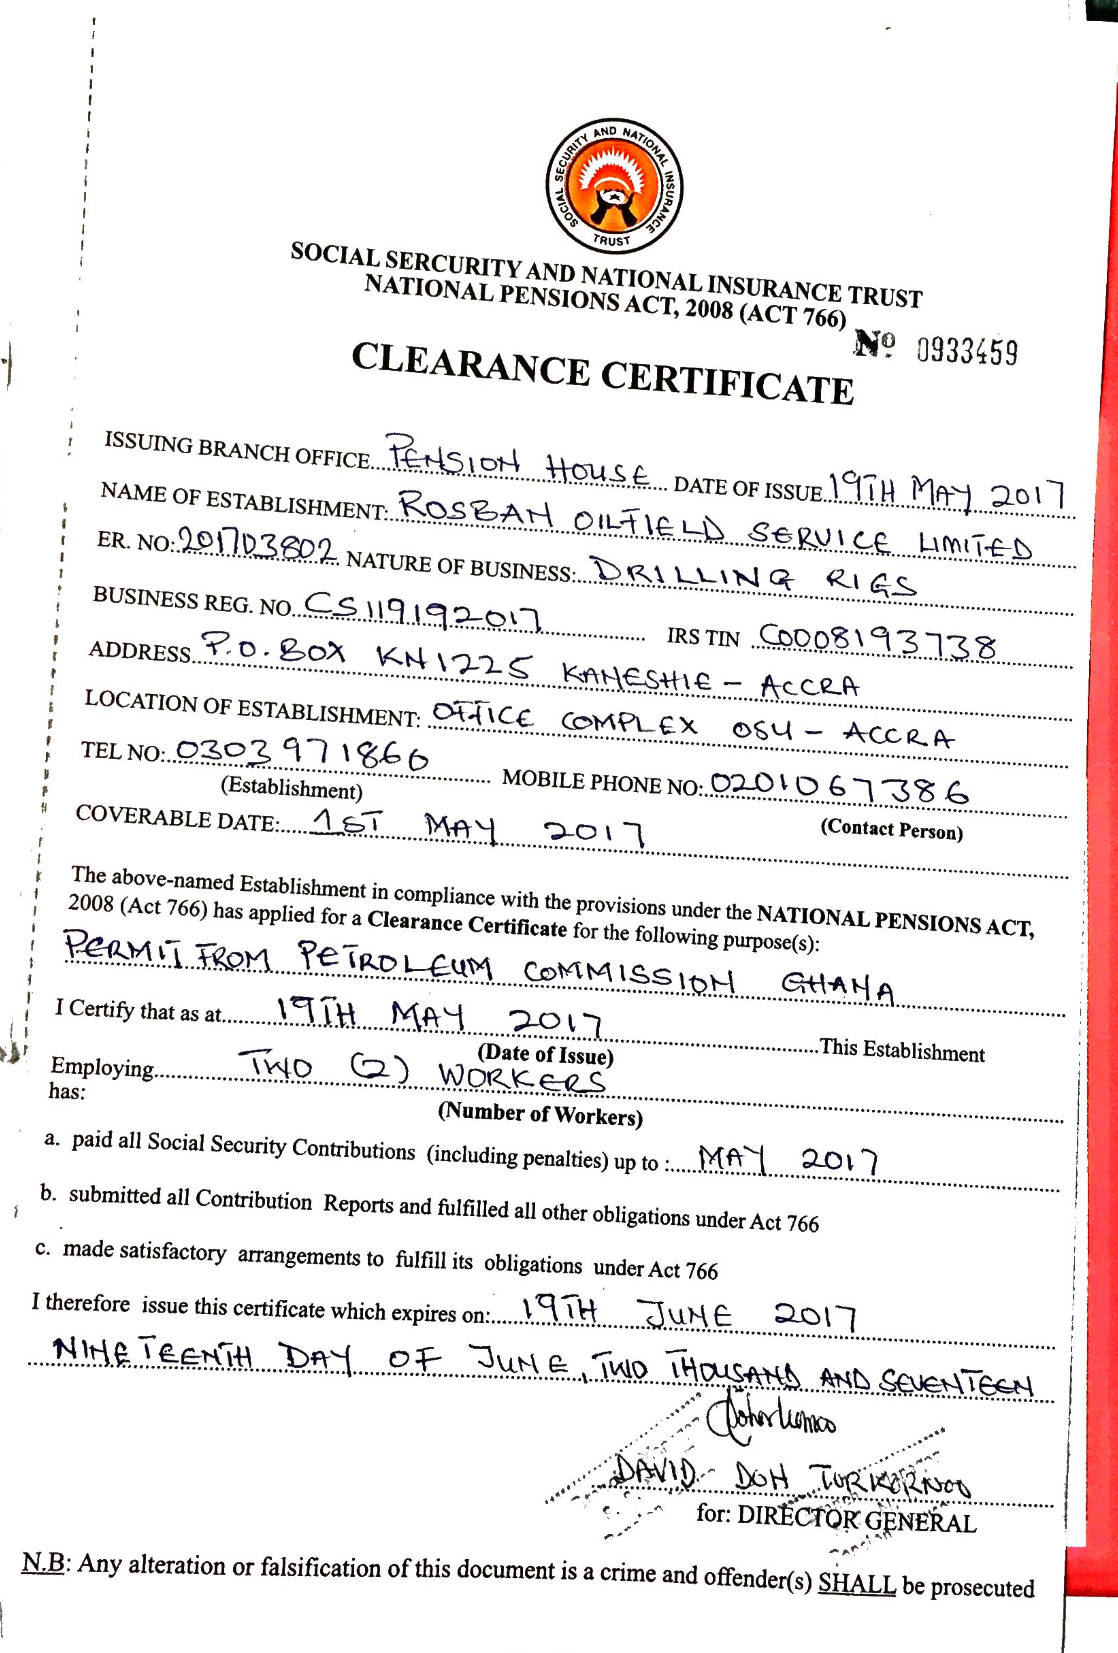 SOCIAL SECURITY AND NATIONAL INSURANCE TRUST
SOCIAL SERCURITY AND NATIONAL INSURANCE TRUST
NATIONAL PENSIONS ACT, 2008 (ACT 766)
Nº 0933459
CLEARANCE CERTIFICATE
ISSUING BRANCH OFFICE PENSION HOUSE DATE OF ISSUE 19TH MAY 2017
NAME OF ESTABLISHMENT: ROSBAN OILFIELD SERVICE LIMITED
ER. NO: 201703802 NATURE OF BUSINESS: DRILLING RIGS
BUSINESS REG. NO. CS119192017 IRS TIN C0008193738
ADDRESS P.O. BOX KN1225 KANESHIE - ACCRA
LOCATION OF ESTABLISHMENT: OFFICE COMPLEX OSU - ACCRA
TEL NO: 0303971866 MOBILE PHONE NO: 0201067386
(Establishment) (Contact Person)
COVERABLE DATE: 1ST MAY 2017
The above-named Establishment in compliance with the provisions under the NATIONAL PENSIONS ACT,
2008 (Act 766) has applied for a Clearance Certificate for the following purpose(s):
PERMIT FROM PETROLEUM COMMISSION GHANA
I Certify that as at 19TH MAY 2017 This Establishment
(Date of Issue)
Employing TWO (2) WORKERS
has:
(Number of Workers)
a. paid all Social Security Contributions (including penalties) up to : MAY 2017
b. submitted all Contribution Reports and fulfilled all other obligations under Act 766
c. made satisfactory arrangements to fulfill its obligations under Act 766
I therefore issue this certificate which expires on: 19TH JUNE 2017
NINETEENTH DAY OF JUNE, TWO THOUSAND AND SEVENTEEN
DAVID DOH TORKORNOO
for: DIRECTOR GENERAL
N.B: Any alteration or falsification of this document is a crime and offender(s) SHALL be prosecuted